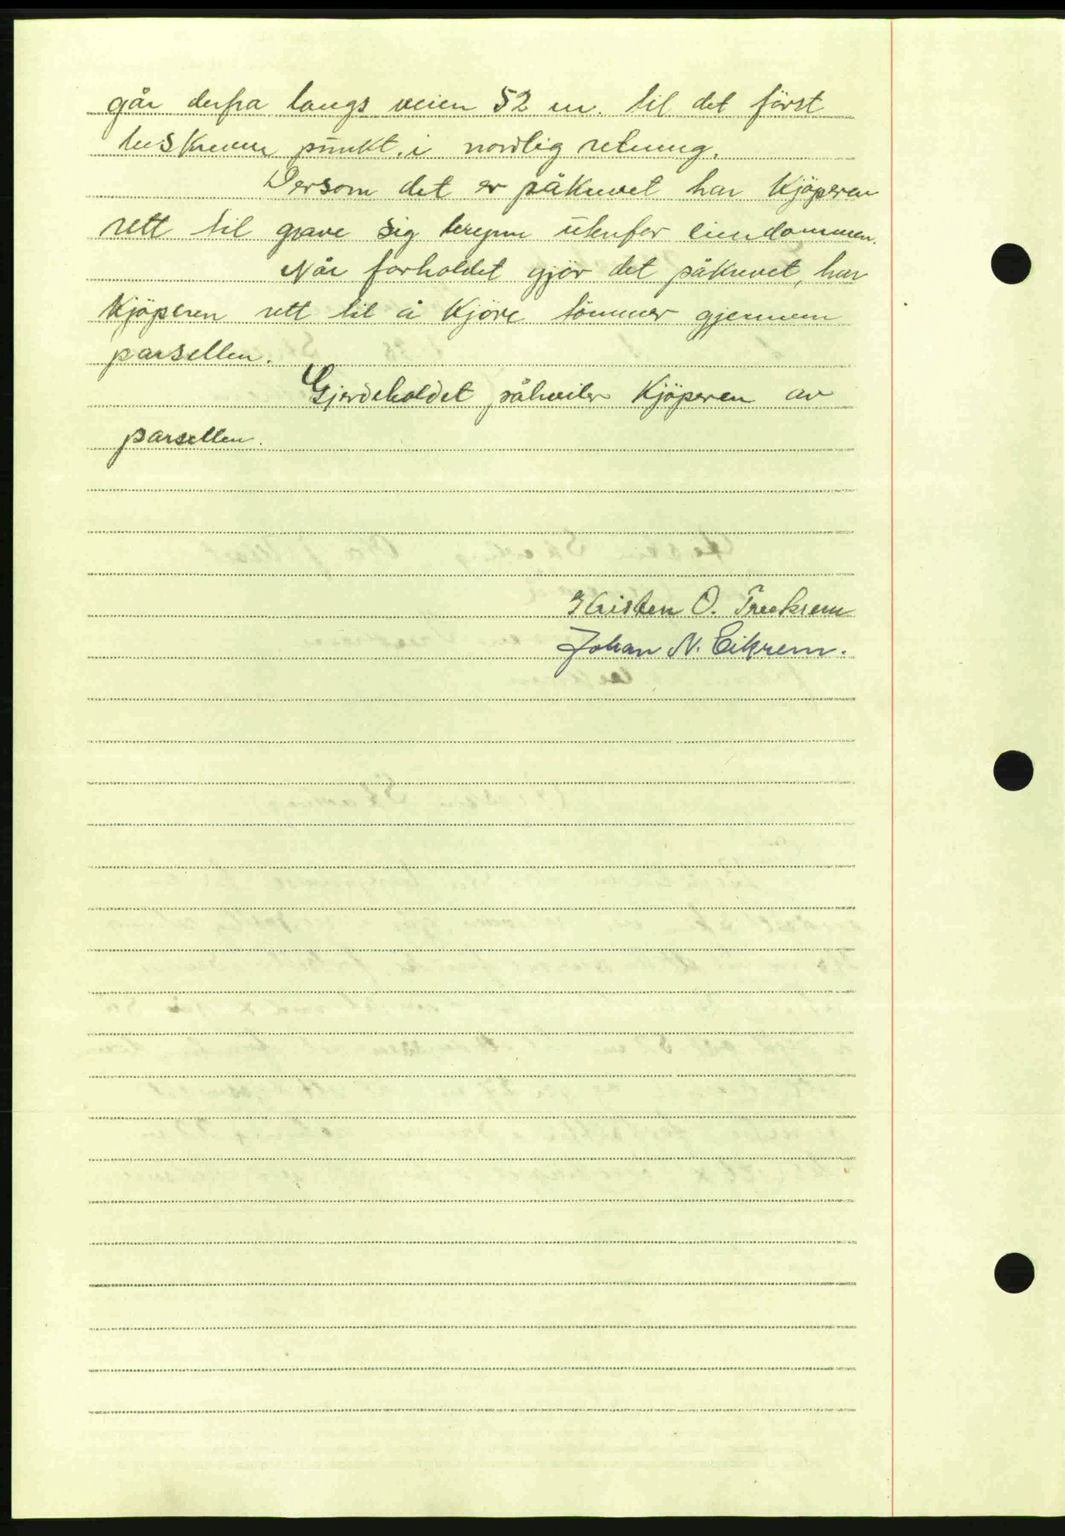 går derfra langs veien 52 m. til det först
beskrevne punkt. i nordlig retning.
Dersom det er påkrevet har Kjöperen
rett til grave sig brynn utenfor eiendommen.
Når forholdet gjör det påkrevet, har
Kjöperen rett til å Kjöre tömmer gjennem
parsellen.
Gjerdeholdet påhviler Kjöperen av
parsellen.
Kristen O. Treekrem
Johan N. Eikrem.